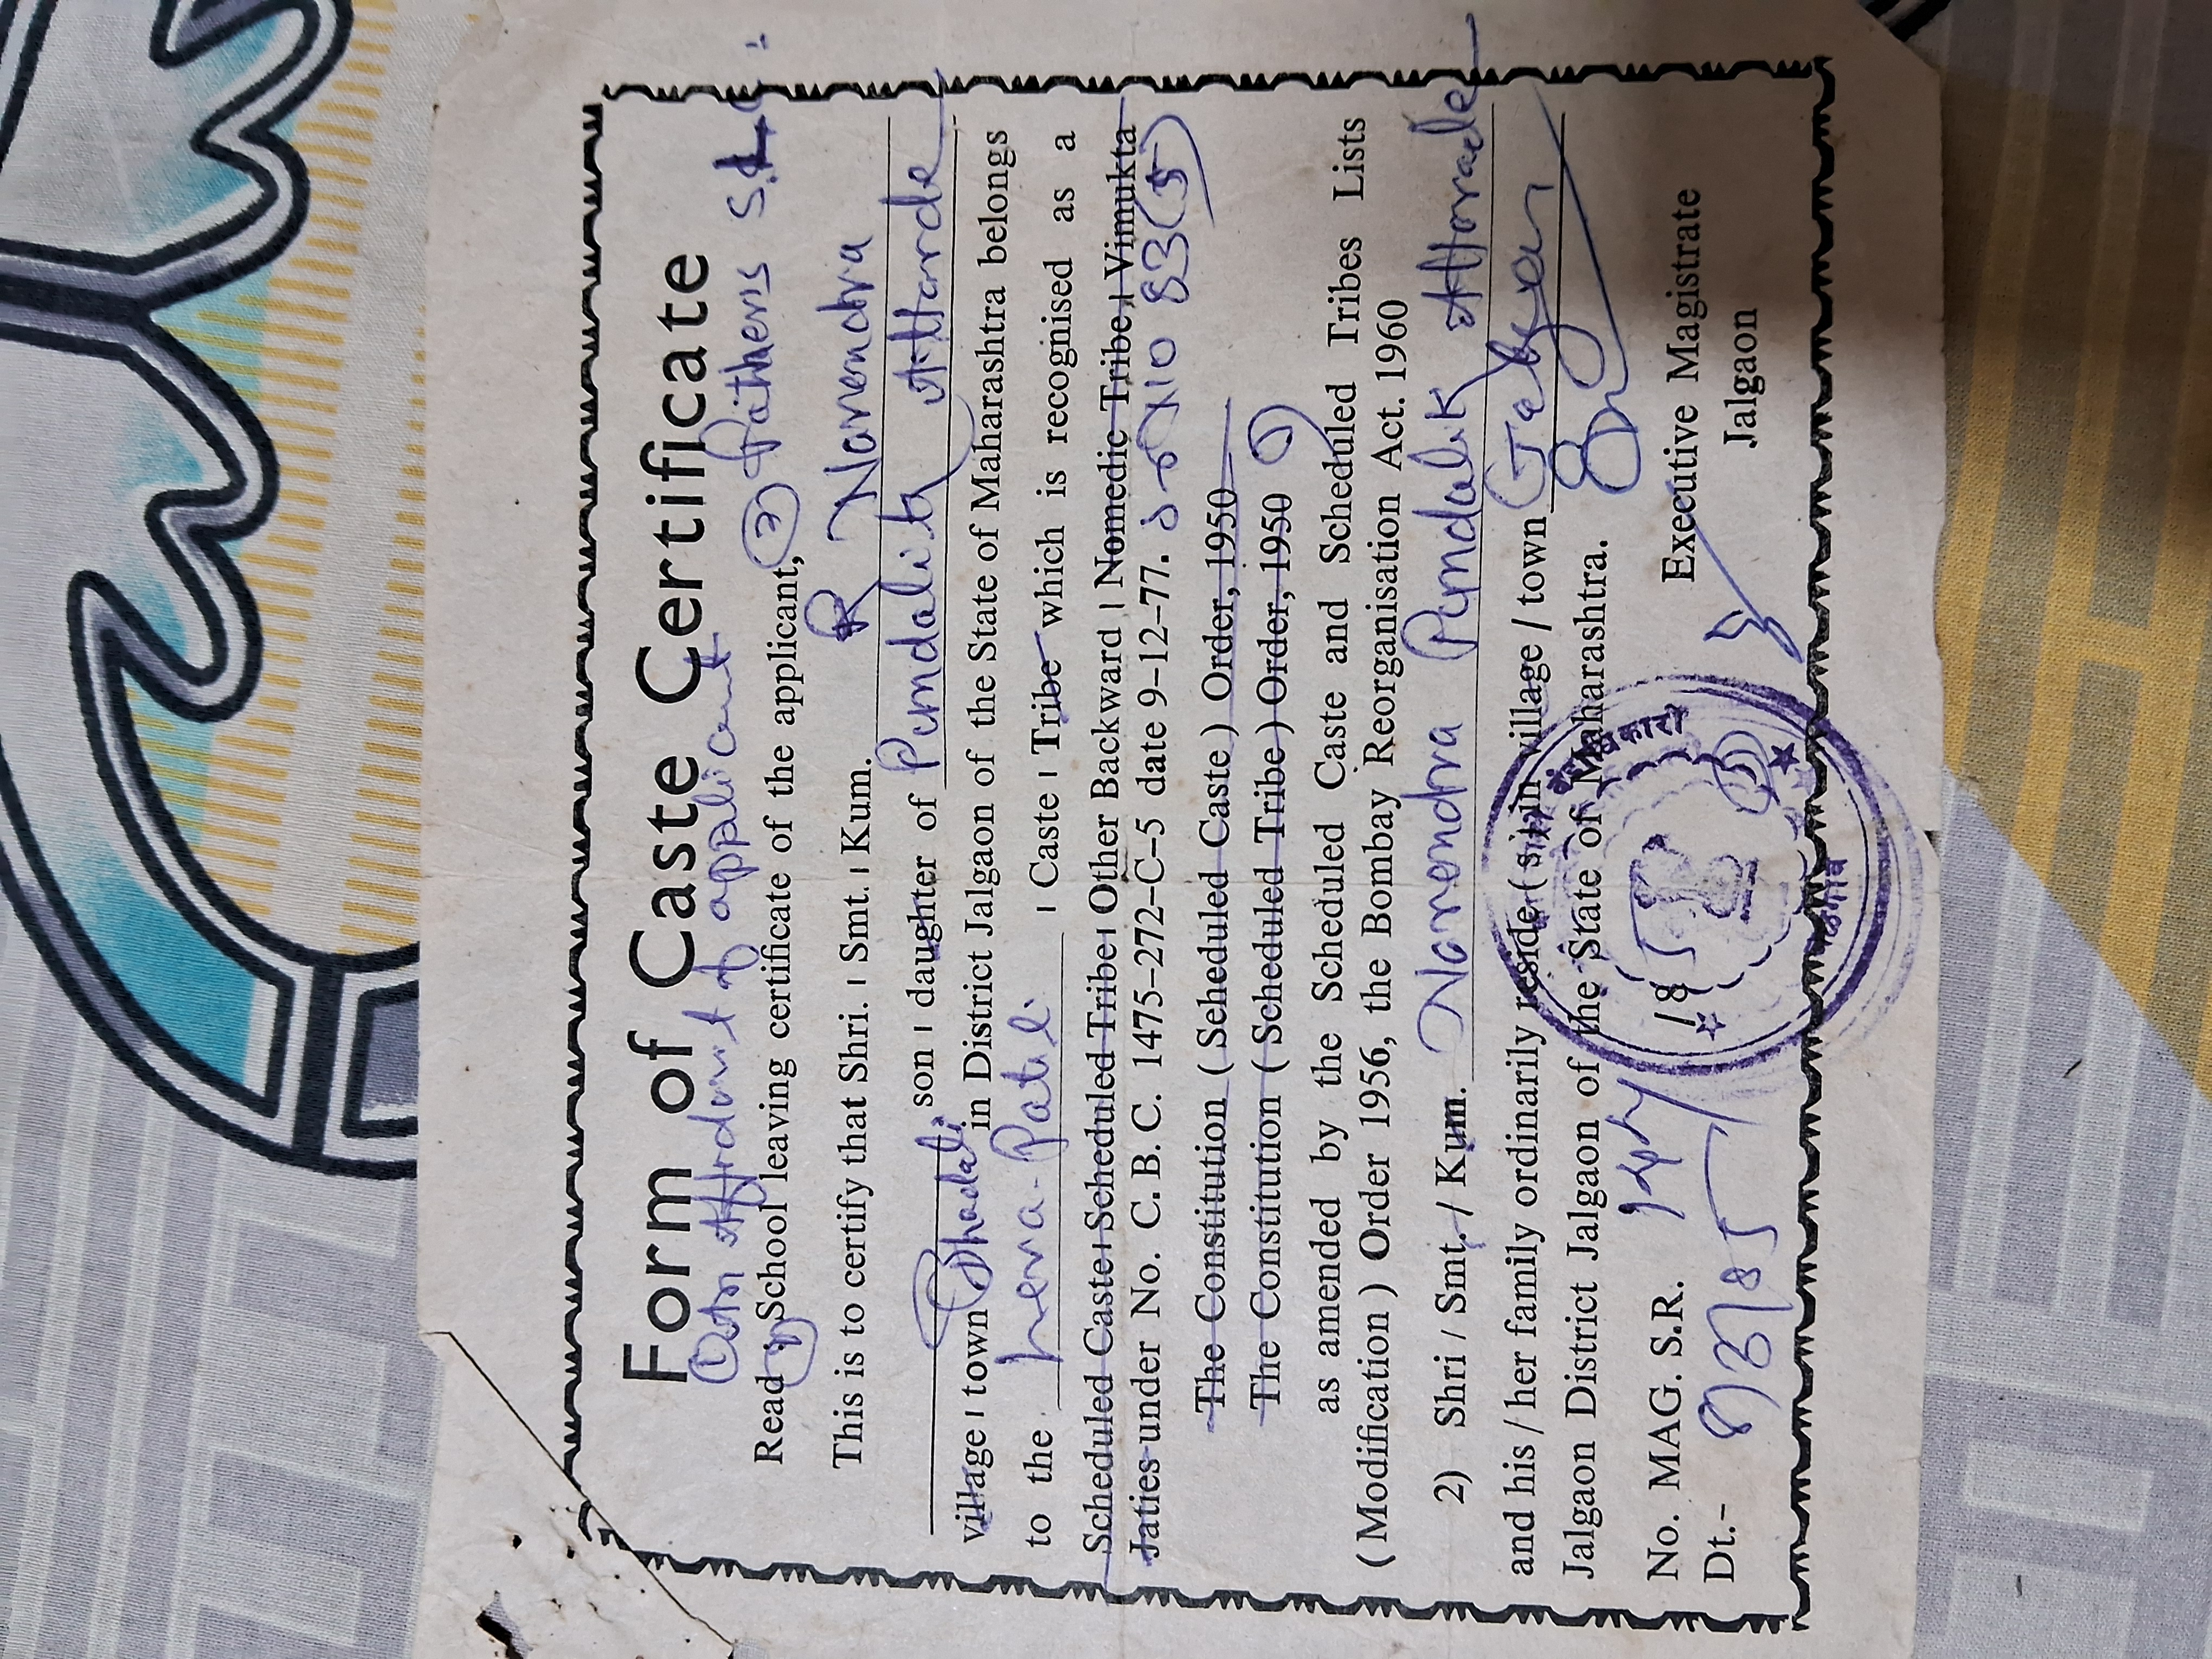 Form of Caste Certificate
① An Affidavit of applicant
Read ② School leaving certificate of the applicant, ③ fathers S.L.C
This is to certify that Shri. / Smt. / Kum. Narendra
son / daughter of Pundalik Attarde
village / town Bhadali in District Jalgaon of the State of Maharashtra belongs
to the Leva-Patil / Caste / Tribe which is recognised as a
Scheduled Caste / Scheduled Tribe / Other Backward / Nomedic Tribe / Vimukta
Jaties under No. C. B. C. 1475-272-C-5 date 9-12-77.
The Constitution ( Scheduled Caste ) Order, 1950
The Constitution ( Scheduled Tribe ) Order, 1950
as amended by the Scheduled Caste and Scheduled Tribes Lists
( Modification ) Order 1956, the Bombay Reorganisation Act. 1960
2) Shri / Smt. / Kum. Narendra Pundalik Attarade
and his / her family ordinarily reside ( s ) in village / town
Jalgaon District Jalgaon of the State of Maharashtra.
No. MAG. S.R.
Dt.-
Executive Magistrate
Jalgaon